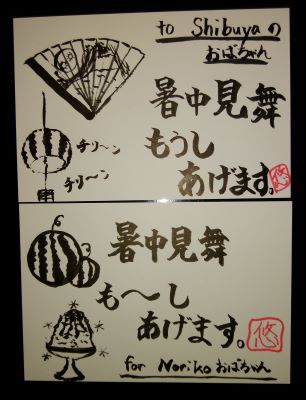 to Shibuyaの
おばちゃん
暑中見舞
もうし
あげます。
悠
チリ〜ン
チリ〜ン
暑中見舞
も〜し
あげます。
悠
for Norikoおばちゃん